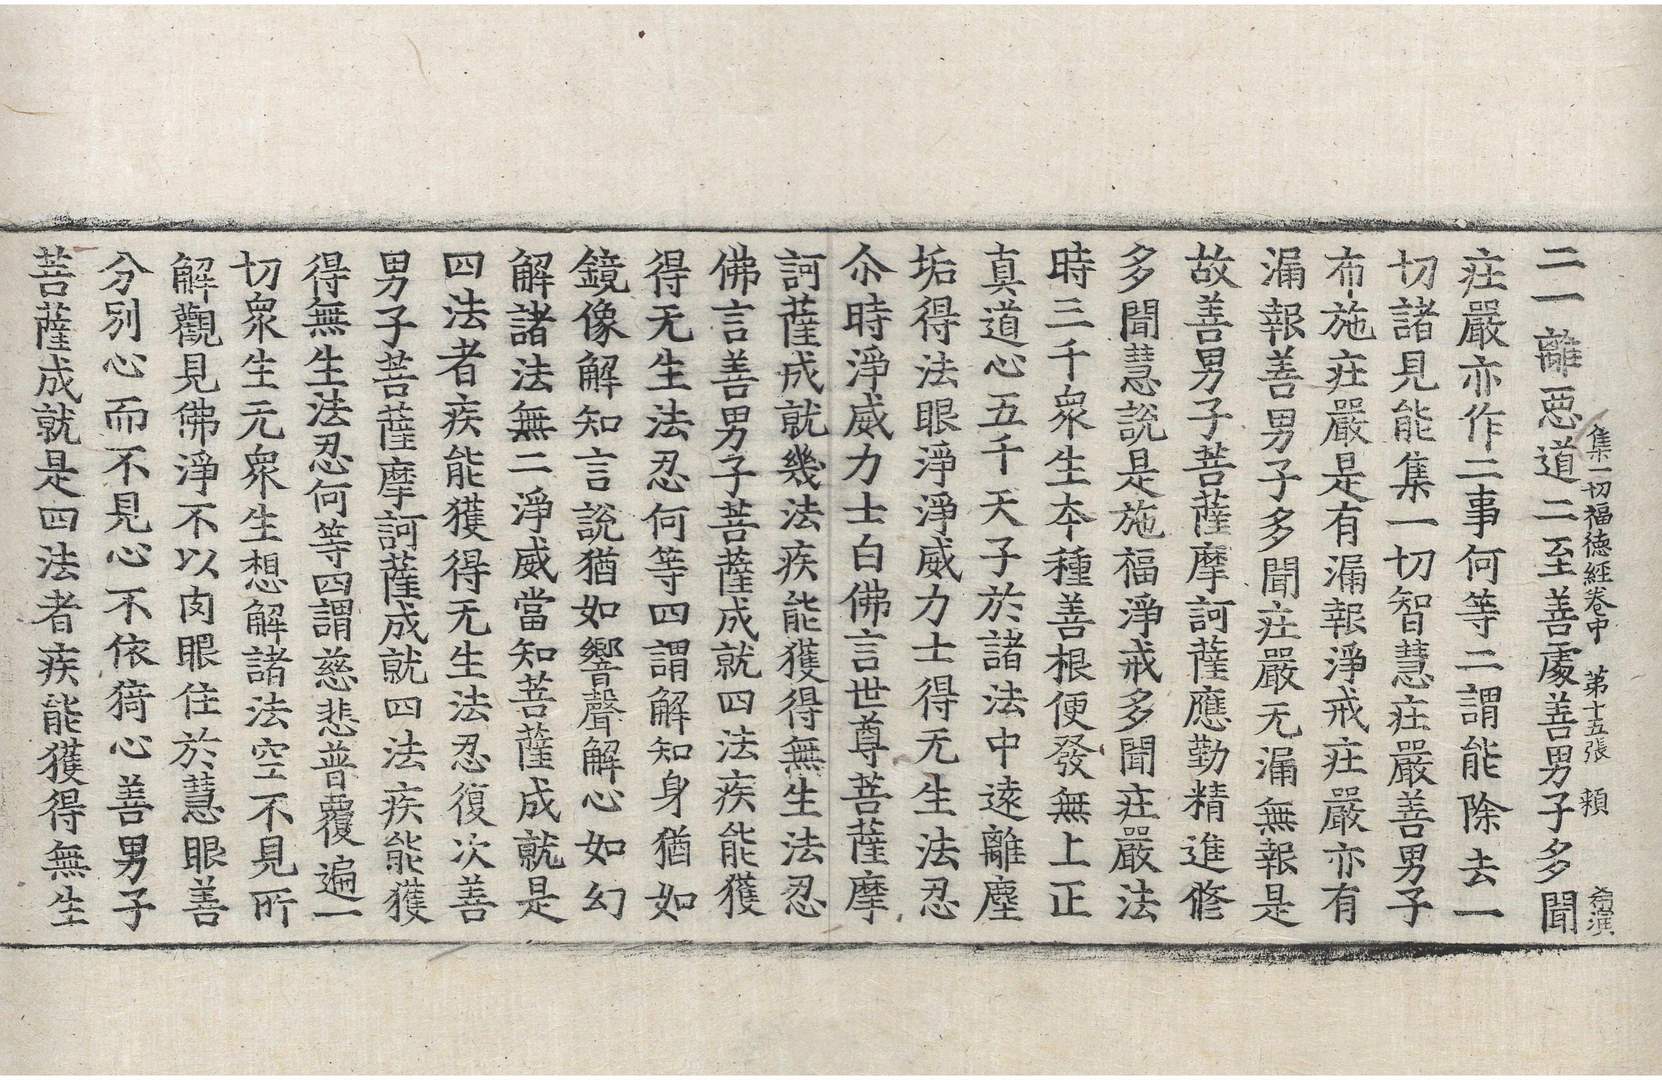 集一切福德經卷中　第十五張　頼
二一離惡道二至善處善男子多聞
莊嚴亦作二事何等二謂能除去一
切諸見能集一切智慧莊嚴善男子
布施莊嚴是有漏報淨戒莊嚴亦有
漏報善男子多聞莊嚴无漏無報是
故善男子菩薩摩訶薩應勤精進修
多聞慧說是施福淨戒多聞莊嚴法
時三千衆生本種善根便發無上正
真道心五千天子於諸法中遠離塵
垢得法眼淨淨威力士得无生法忍
尒時淨威力士白佛言世尊菩薩摩
訶薩成就幾法疾能獲得無生法忍
佛言善男子菩薩成就四法疾能獲
得无生法忍何等四謂解知身猶如
鏡像解知言說猶如響聲解心如幻
解諸法無二淨威當知菩薩成就是
四法者疾能獲得无生法忍復次善
男子菩薩摩訶薩成就四法疾能獲
得無生法忍何等四謂慈悲普覆遍一
切衆生无衆生想解諸法空不見所
解觀見佛淨不以肉眼住於慧眼善
分別心而不見心不依猗心善男子
菩薩成就是四法者疾能獲得無生